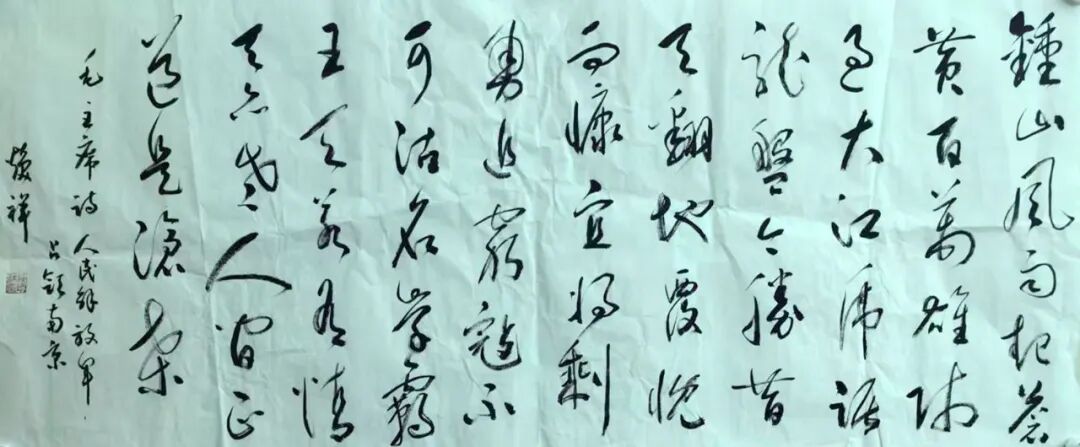 鍾山風雨起蒼
黄百萬雄师
过大江虎踞
龍盤今勝昔
天翻地覆慨
而慷宜将剩
勇追窮寇不
可沽名学霸
王天若有情
天亦老人间正
道是滄桑
毛主席诗 人民解放军
占领南京
祥